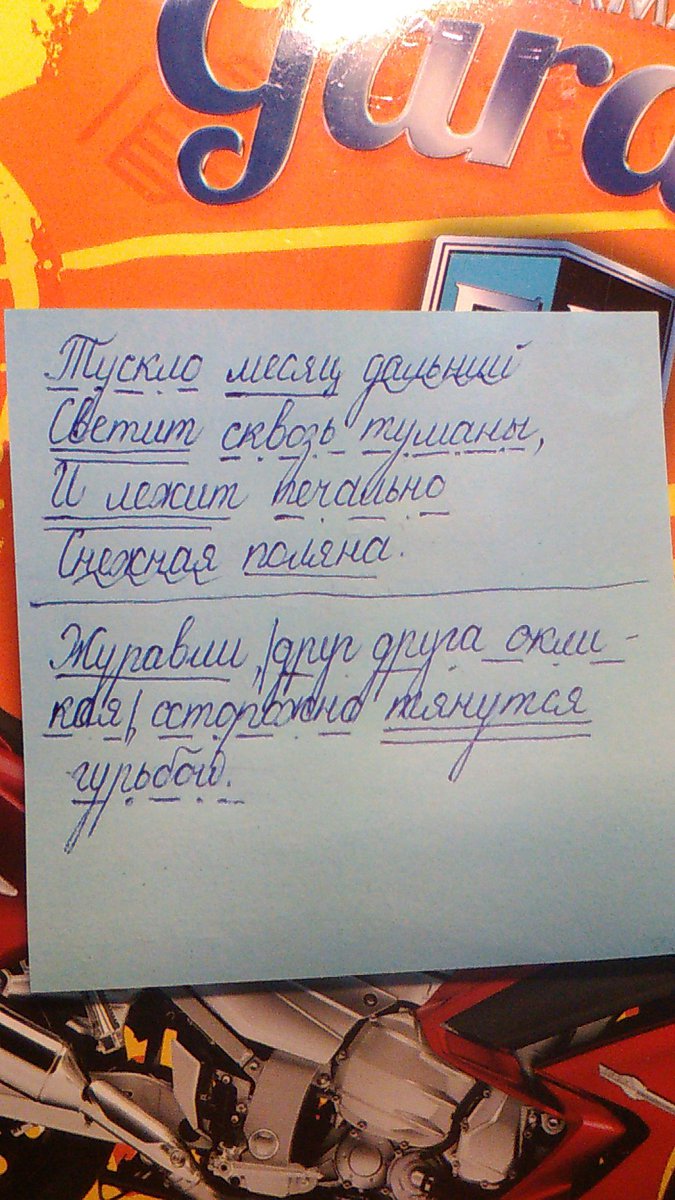 gara
Тускло месяц дальний
Светит сквозь туманы,
И лежит печально
Снежная поляна.
Журавли, друг друга окли-
кая, осторожно тянутся
гурьбой.